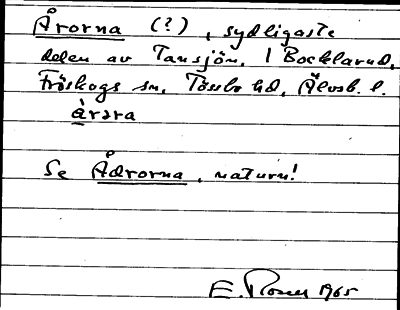 Årorna (?), sydligaste
delen av Tansjön. I Bocklarud,
Fröskogs sn, Tössbo hd, Älvsb. l.
àrɔra
Se Ådrorna, naturn!
E. Rosén 1965